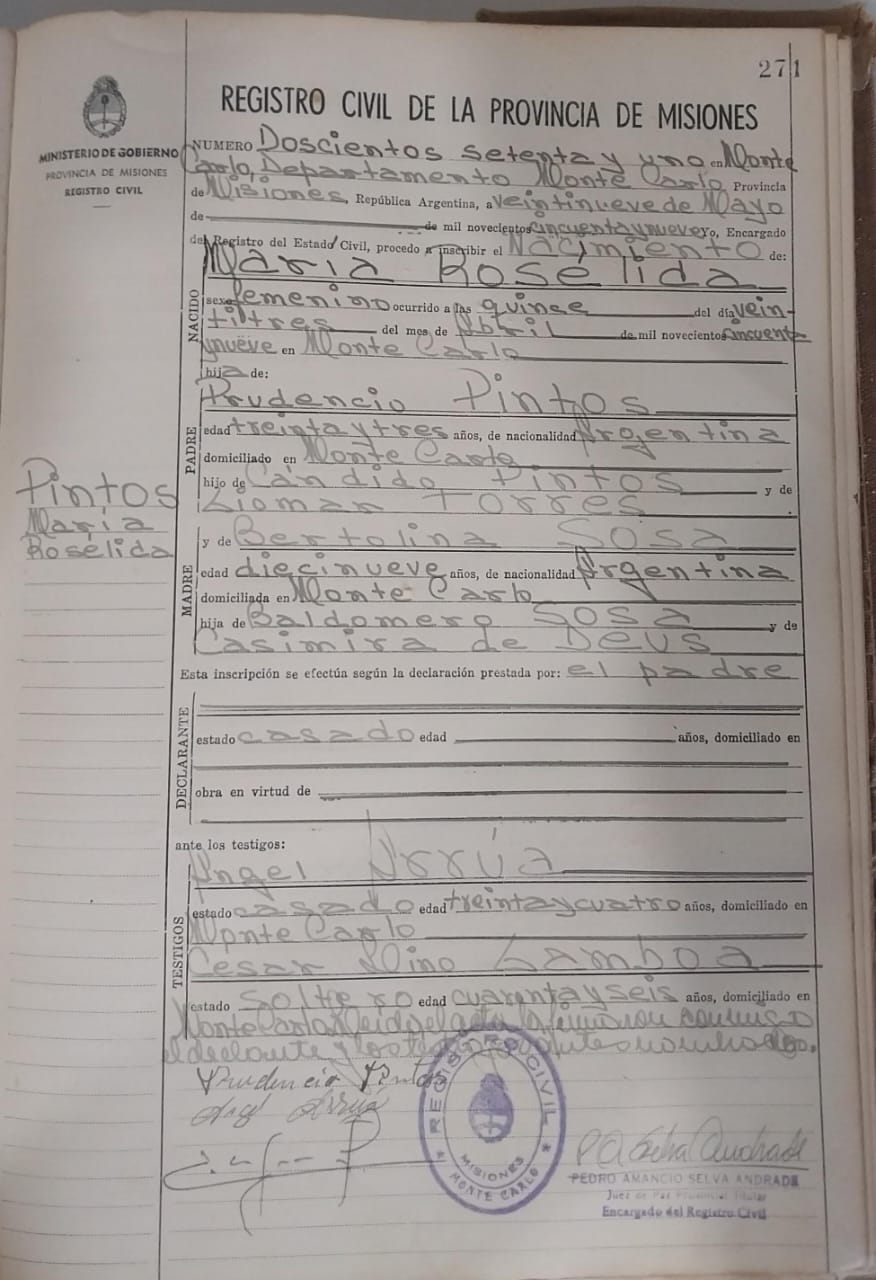 271
REGISTRO CIVIL DE LA PROVINCIA DE MISIONES
MINISTERIO DE GOBIERNO
PROVINCIA DE MISIONES
REGISTRO CIVIL
NUMERO Doscientos setenta y uno en Monte
Carlo, Departamento Monte Carlo Provincia
de Misiones, República Argentina, a veintinueve de Mayo
de de mil novecientos cincuentaynueve yo, Encargado
del Registro del Estado Civil, procedo a inscribir el Nacimiento de:
María Roselida
NACIDO
sexo femenino ocurrido a las quince del día vein-
titres del mes de Abril de mil novecientos cincuenta
ynueve en Monte Carlo
hija de:
Prudencio Pintos
PADRE
edad treintaytres años, de nacionalidad Argentina
domiciliado en Monte Carlo
hijo de Cándido Pintos y de
Liomar Torres
Pintos
María
Rosélida
y de Bertolina Sosa
MADRE
edad diecinueve años, de nacionalidad Argentina
domiciliada en Monte Carlo
hija de Baldomero Sosa y de
Casimira de Deus
Esta inscripción se efectúa según la declaración prestada por: el padre
DECLARANTE
estado casado edad años, domiciliado en
obra en virtud de
ante los testigos:
Angel Arrúa
TESTIGOS
estado casado edad treintaycuatro años, domiciliado en
Monte Carlo
Cesar Lino Gamboa
estado Soltero edad cuarentayseis años, domiciliado en
Monte Carlo. Leída el acta la firmaron conmigo
el declarante y los testigos nombrados.
Prudencio Pintos
Angel Arrúa
REGISTRO CIVIL
MISIONES
MONTE CARLO
PA Selva Andrade
PEDRO AMANCIO SELVA ANDRADE
Juez de Paz Provincial Titular
Encargado del Registro Civil